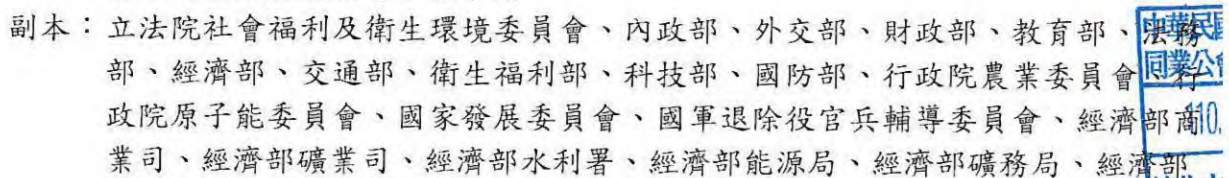 副本：立法院社會福利及衛生環境委員會、內政部、外交部、財政部、教育部、法務
部、經濟部、交通部、衛生福利部、科技部、國防部、行政院農業委員會、行
政院原子能委員會、國家發展委員會、國軍退除役官兵輔導委員會、經濟部商
業司、經濟部礦業司、經濟部水利署、經濟部能源局、經濟部礦務局、經濟部
中華民
同業公
110